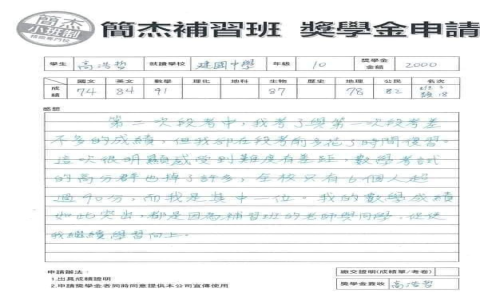 簡杰
小班制
簡杰補習班 獎學金申請
學生 高浩哲 就讀學校 建國中學 年級 10 獎學金金額 2000
國文 英文 數學 理化 地科 生物 歷史 地理 公民 名次
成績 74 84 91 87 78 82
感想
第二次段考中,我考了與第一次段考差
不多的成績,但我卻在段考前多花了時間複習。
這次很明顯感受到難度有差距,數學考試
的高分群也掉了許多,全校只有6個人超
過90分,而我是其中一位。我的數學成績
如此突出,都是因為補習班的老師與同學,促使
我繼續學習向上。
申請辦法:
1.出具成績證明。
2.申請獎學金者同時同意提供本公司宣傳使用
繳交證明(成績單/考卷)
獎學金簽收 高浩哲